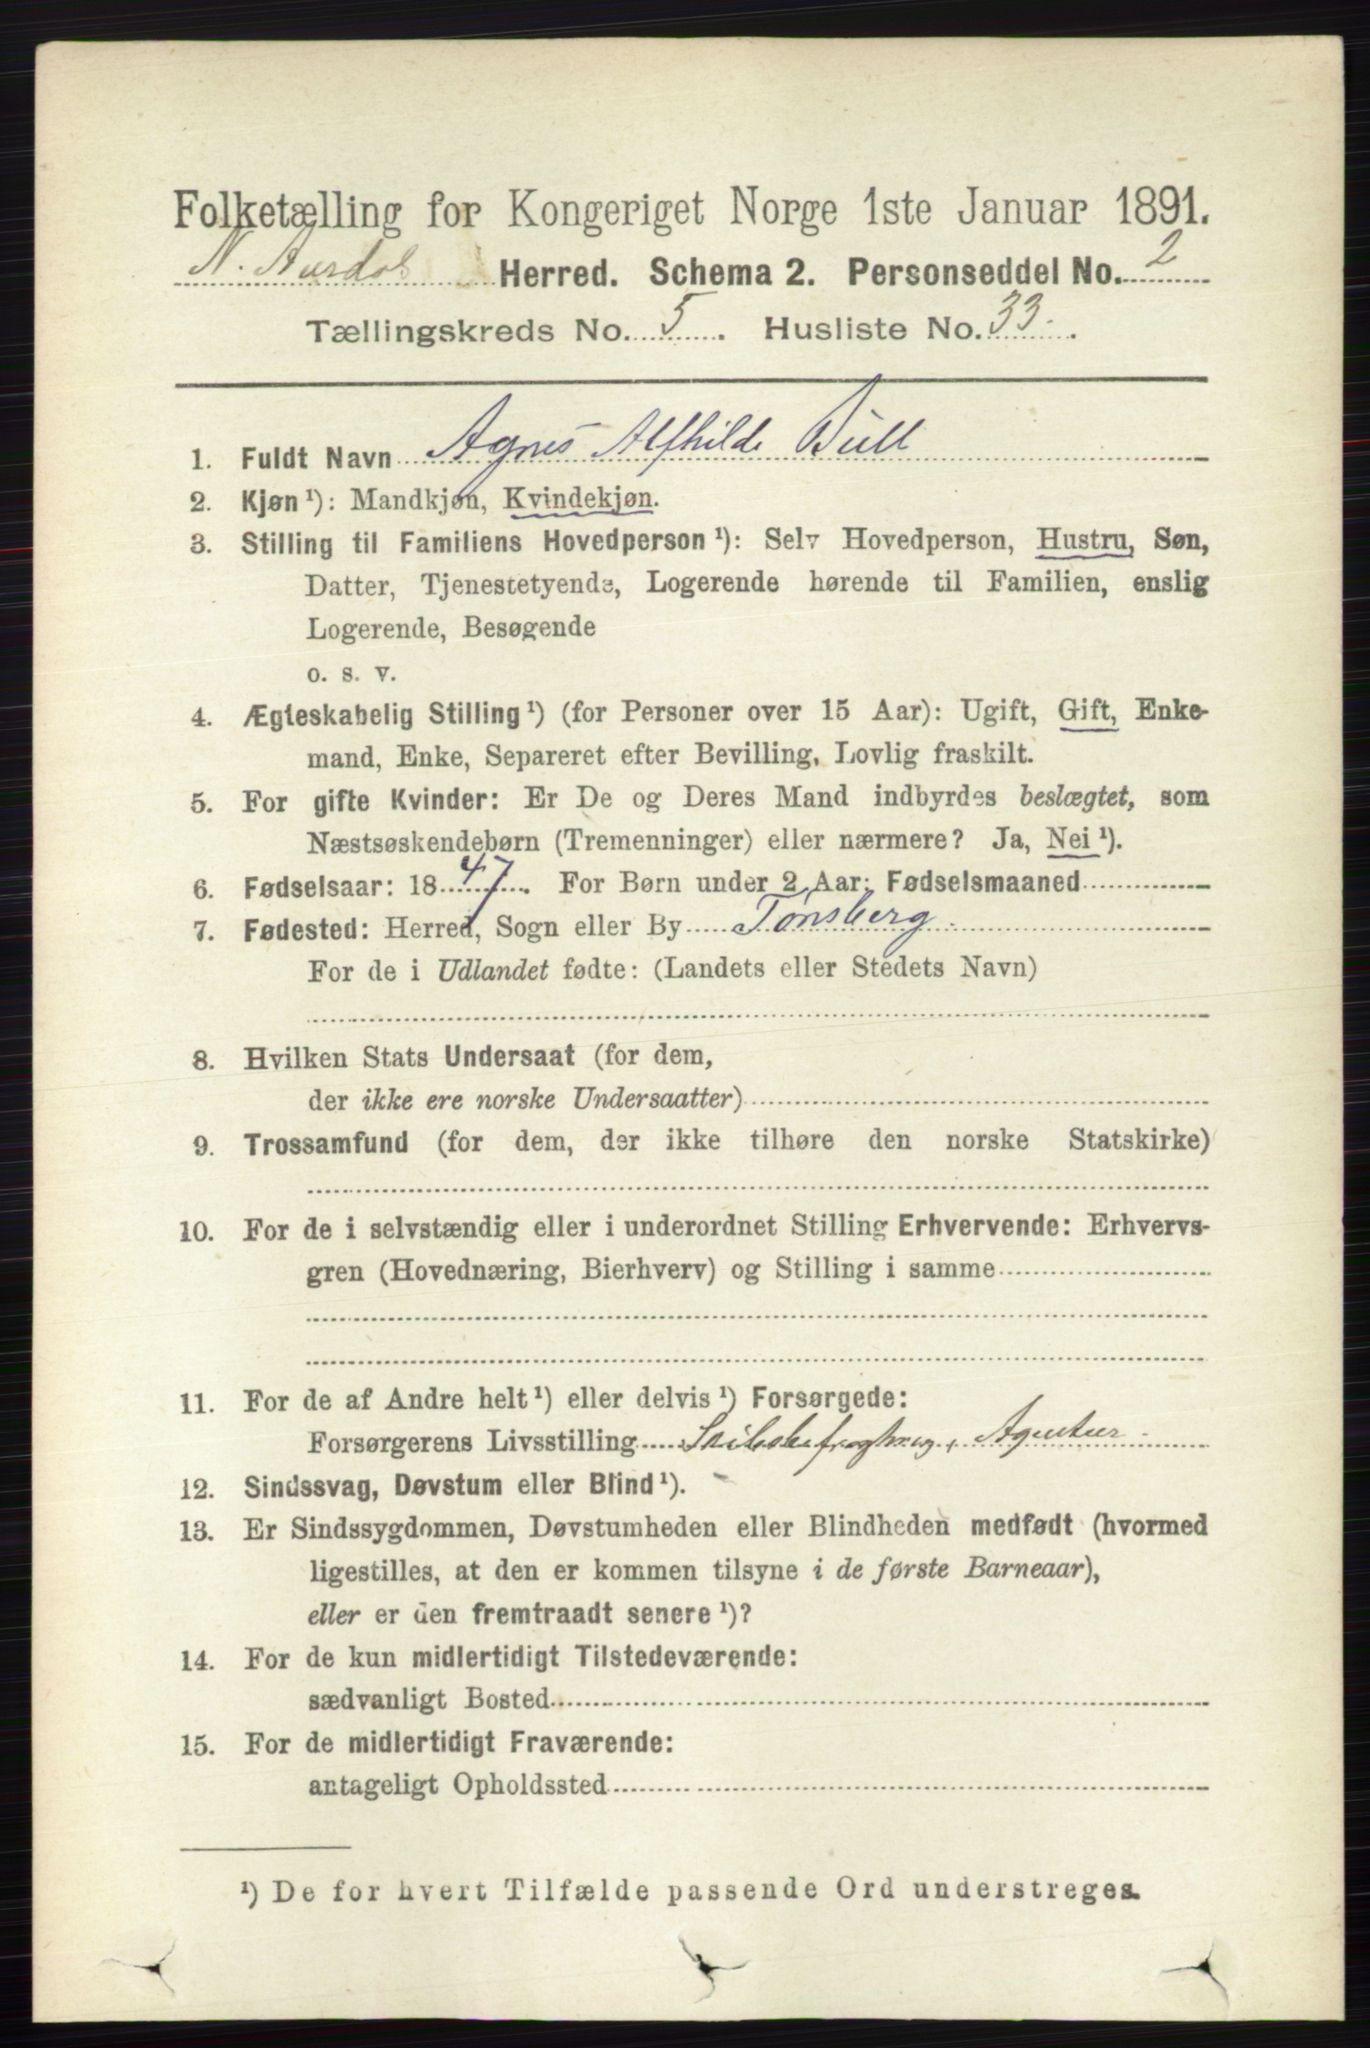 Folketælling for Kongeriget Norge 1ste Januar 1891.
N. Aurdal Herred. Schema 2. Personseddel No. 2
Tællingskreds No. 5. Husliste No. 33.
1. Fuldt Navn Agnes Alfhilde Bull
2. Kjøn¹): Mandkjøn, Kvindekjøn.
3. Stilling til Familiens Hovedperson¹): Selv Hovedperson, Hustru, Søn,
Datter, Tjenestetyende, Logerende hørende til Familien, enslig
Logerende, Besøgende
o. s. v.
4. Ægteskabelig Stilling¹) (for Personer over 15 Aar): Ugift, Gift, Enke-
mand, Enke, Separeret efter Bevilling, Lovlig fraskilt.
5. For gifte Kvinder: Er De og Deres Mand indbyrdes beslægtet, som
Næstsøskendebørn (Tremenninger) eller nærmere? Ja, Nei¹).
6. Fødselsaar: 1847. For Børn under 2 Aar: Fødselsmaaned
7. Fødested: Herred, Sogn eller By Tønsberg.
For de i Udlandet fødte: (Landets eller Stedets Navn)
8. Hvilken Stats Undersaat (for dem,
der ikke ere norske Undersaatter)
9. Trossamfund (for dem, der ikke tilhøre den norske Statskirke)
10. For de i selvstændig eller i underordnet Stilling Erhvervende: Erhvervs-
gren (Hovednæring, Bierhverv) og Stilling i samme
11. For de af Andre helt¹) eller delvis¹) Forsørgede:
Forsørgerens Livsstilling Skibsbefragtning, Agentur
12. Sindssvag, Døvstum eller Blind¹).
13. Er Sindssygdommen, Døvstumheden eller Blindheden medfødt (hvormed
ligestilles, at den er kommen tilsyne i de første Barneaar),
eller er den fremtraadt senere¹)?
14. For de kun midlertidigt Tilstedeværende:
sædvanligt Bosted
15. For de midlertidigt Fraværende:
antageligt Opholdssted
¹) De for hvert Tilfælde passende Ord understreges.